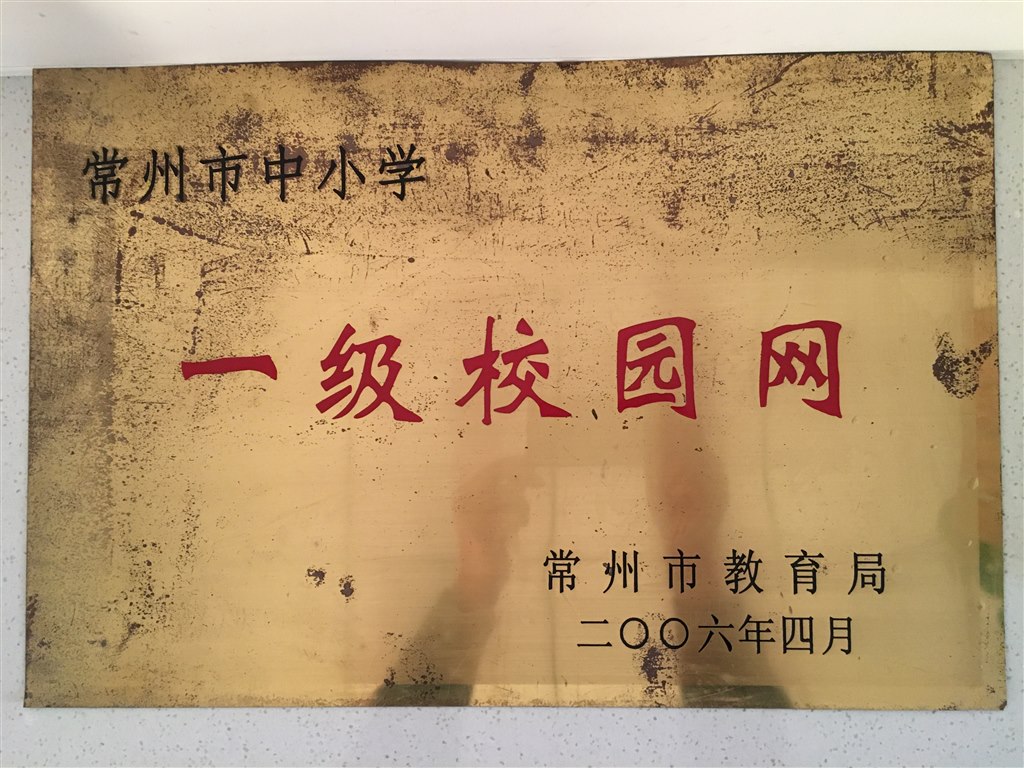 常州市中小学
一级校园网
常州市教育局
二〇〇六年四月